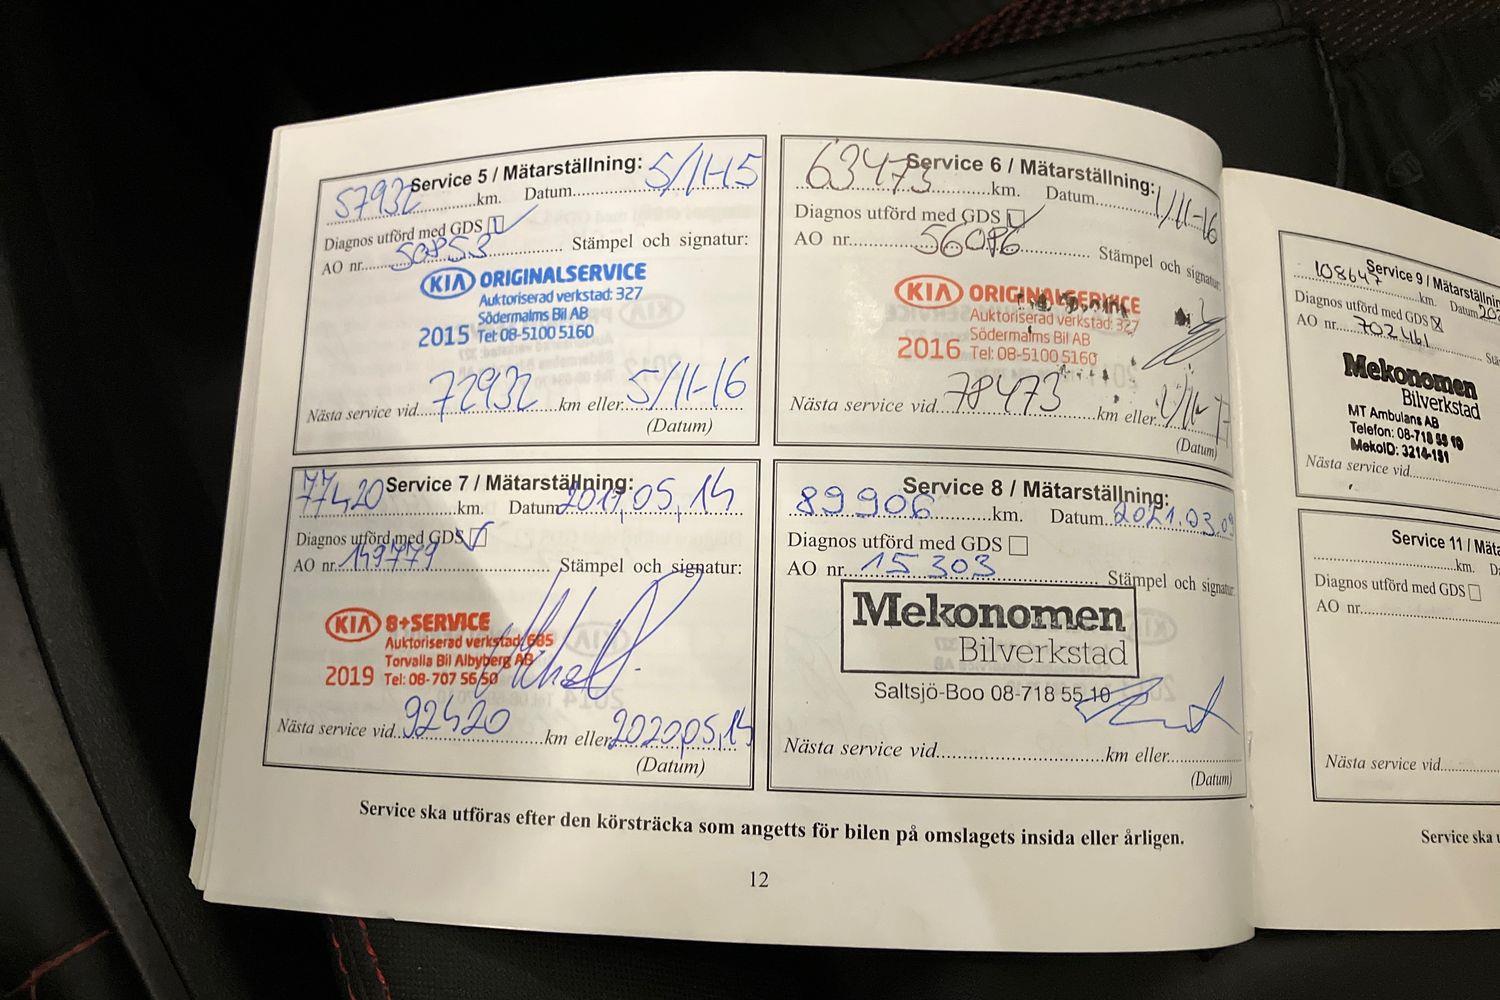 Service 5 / Mätarställning:
57932 km. Datum 5/11-15
Diagnos utförd med GDS
AO nr. 50853 Stämpel och signatur:
KIA ORIGINALSERVICE
Auktoriserad verkstad: 327
Södermalms Bil AB
2015 Tel: 08-5100 5160
Nästa service vid 72932 km eller 5/11-16
(Datum)
Service 6 / Mätarställning:
63473 km. Datum 1/11-16
Diagnos utförd med GDS
AO nr. 56086 Stämpel och signatur
KIA ORIGINALSERVICE
Auktoriserad verkstad: 327
Södermalms Bil AB
2016 Tel: 08-5100 5160
Nästa service vid 78473 km eller
(Datum)
Service 7 / Mätarställning:
77420 km. Datum 2019,05,14
Diagnos utförd med GDS
AO nr. 149779 Stämpel och signatur:
KIA 8+SERVICE
Auktoriserad verkstad: 685
Torvalla Bil Albyberg AB
2019 Tel: 08-707 56 50
Nästa service vid 92420 km eller 2020,05,14
(Datum)
Service 8 / Mätarställning:
89906 km. Datum 2021.03.09
Diagnos utförd med GDS
AO nr. 15303
Stämpel och signatur
Mekonomen
Bilverkstad
Saltsjö-Boo 08-718 55 10
Nästa service vid km eller
(Datum)
Service ska utföras efter den körsträcka som angetts för bilen på omslagets insida eller årligen.
12
Service 9 / Mätarställnin
108647 km. Datum 202
Diagnos utförd med GDS
AO nr. 702461
Mekonomen
Bilverkstad
MT Ambulans AB
Telefon: 08-718 55 10
MekoID: 3214-191
Nästa service vid
Service 11 / Mäta
km.
Diagnos utförd med GDS
AO nr.
Nästa service vid
Service ska